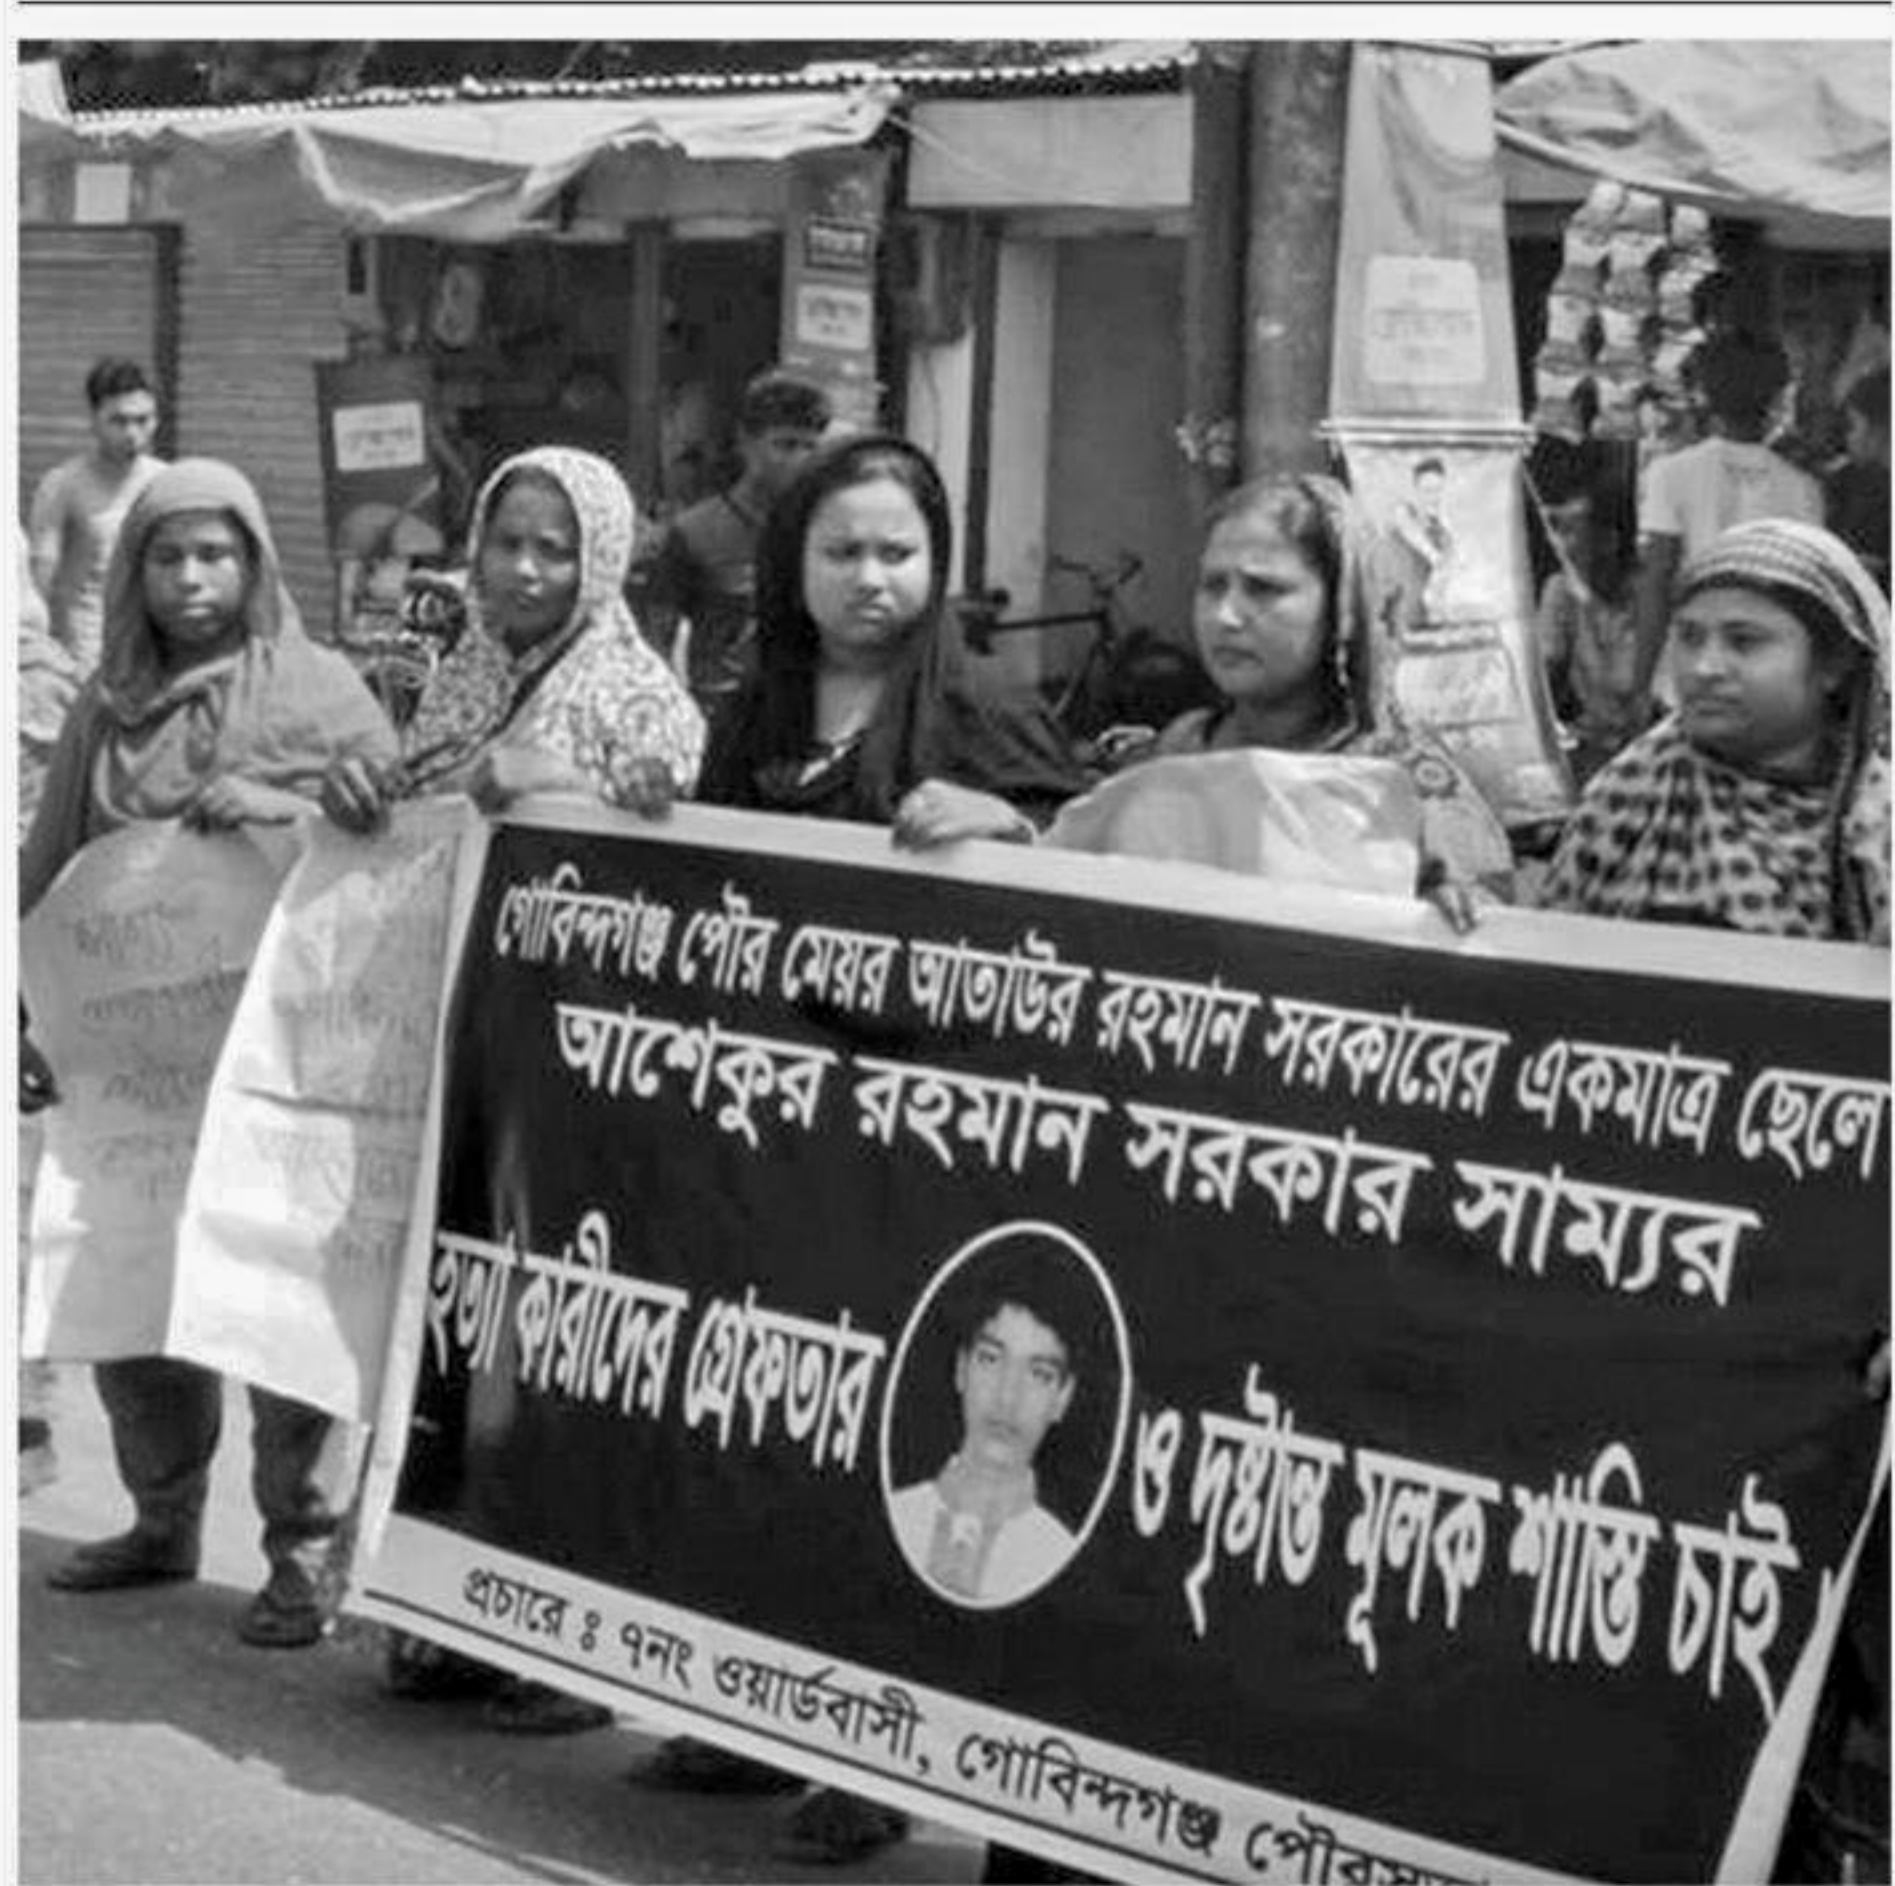 গোবিন্দগঞ্জ পৌর মেয়র আতাউর রহমান সরকারের একমাত্র ছেলে
আশেকুর রহমান সরকার সাম্যর
হত্যা কারীদের গ্রেফতার ও দৃষ্টান্ত মূলক শাস্তি চাই।
প্রচারে ঃ ৭নং ওয়ার্ডবাসী, গোবিন্দগঞ্জ